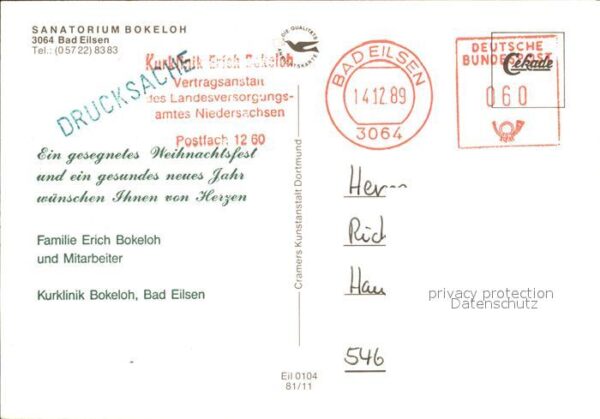 SANATORIUM BOKELOH
3064 Bad Eilsen
Tel.: (05722) 8383
DRUCKSACHE
Kurklinik Erich Bokeloh
Vertragsanstalt
des Landesversorgungs-
amtes Niedersachsen
Postfach 12 60
DIE QUALITÄTS
BAD EILSEN
14.12.89
3064
DEUTSCHE
BUNDESPOST
Cekade
060
Ein gesegnetes Weihnachtsfest
und ein gesundes neues Jahr
wünschen Ihnen von Herzen
Familie Erich Bokeloh
und Mitarbeiter
Kurklinik Bokeloh, Bad Eilsen
Cramers Kunstanstalt Dortmund
Eil 0104
81/11
Herrn
Rid
Hau
546
privacy protection
Datenschutz